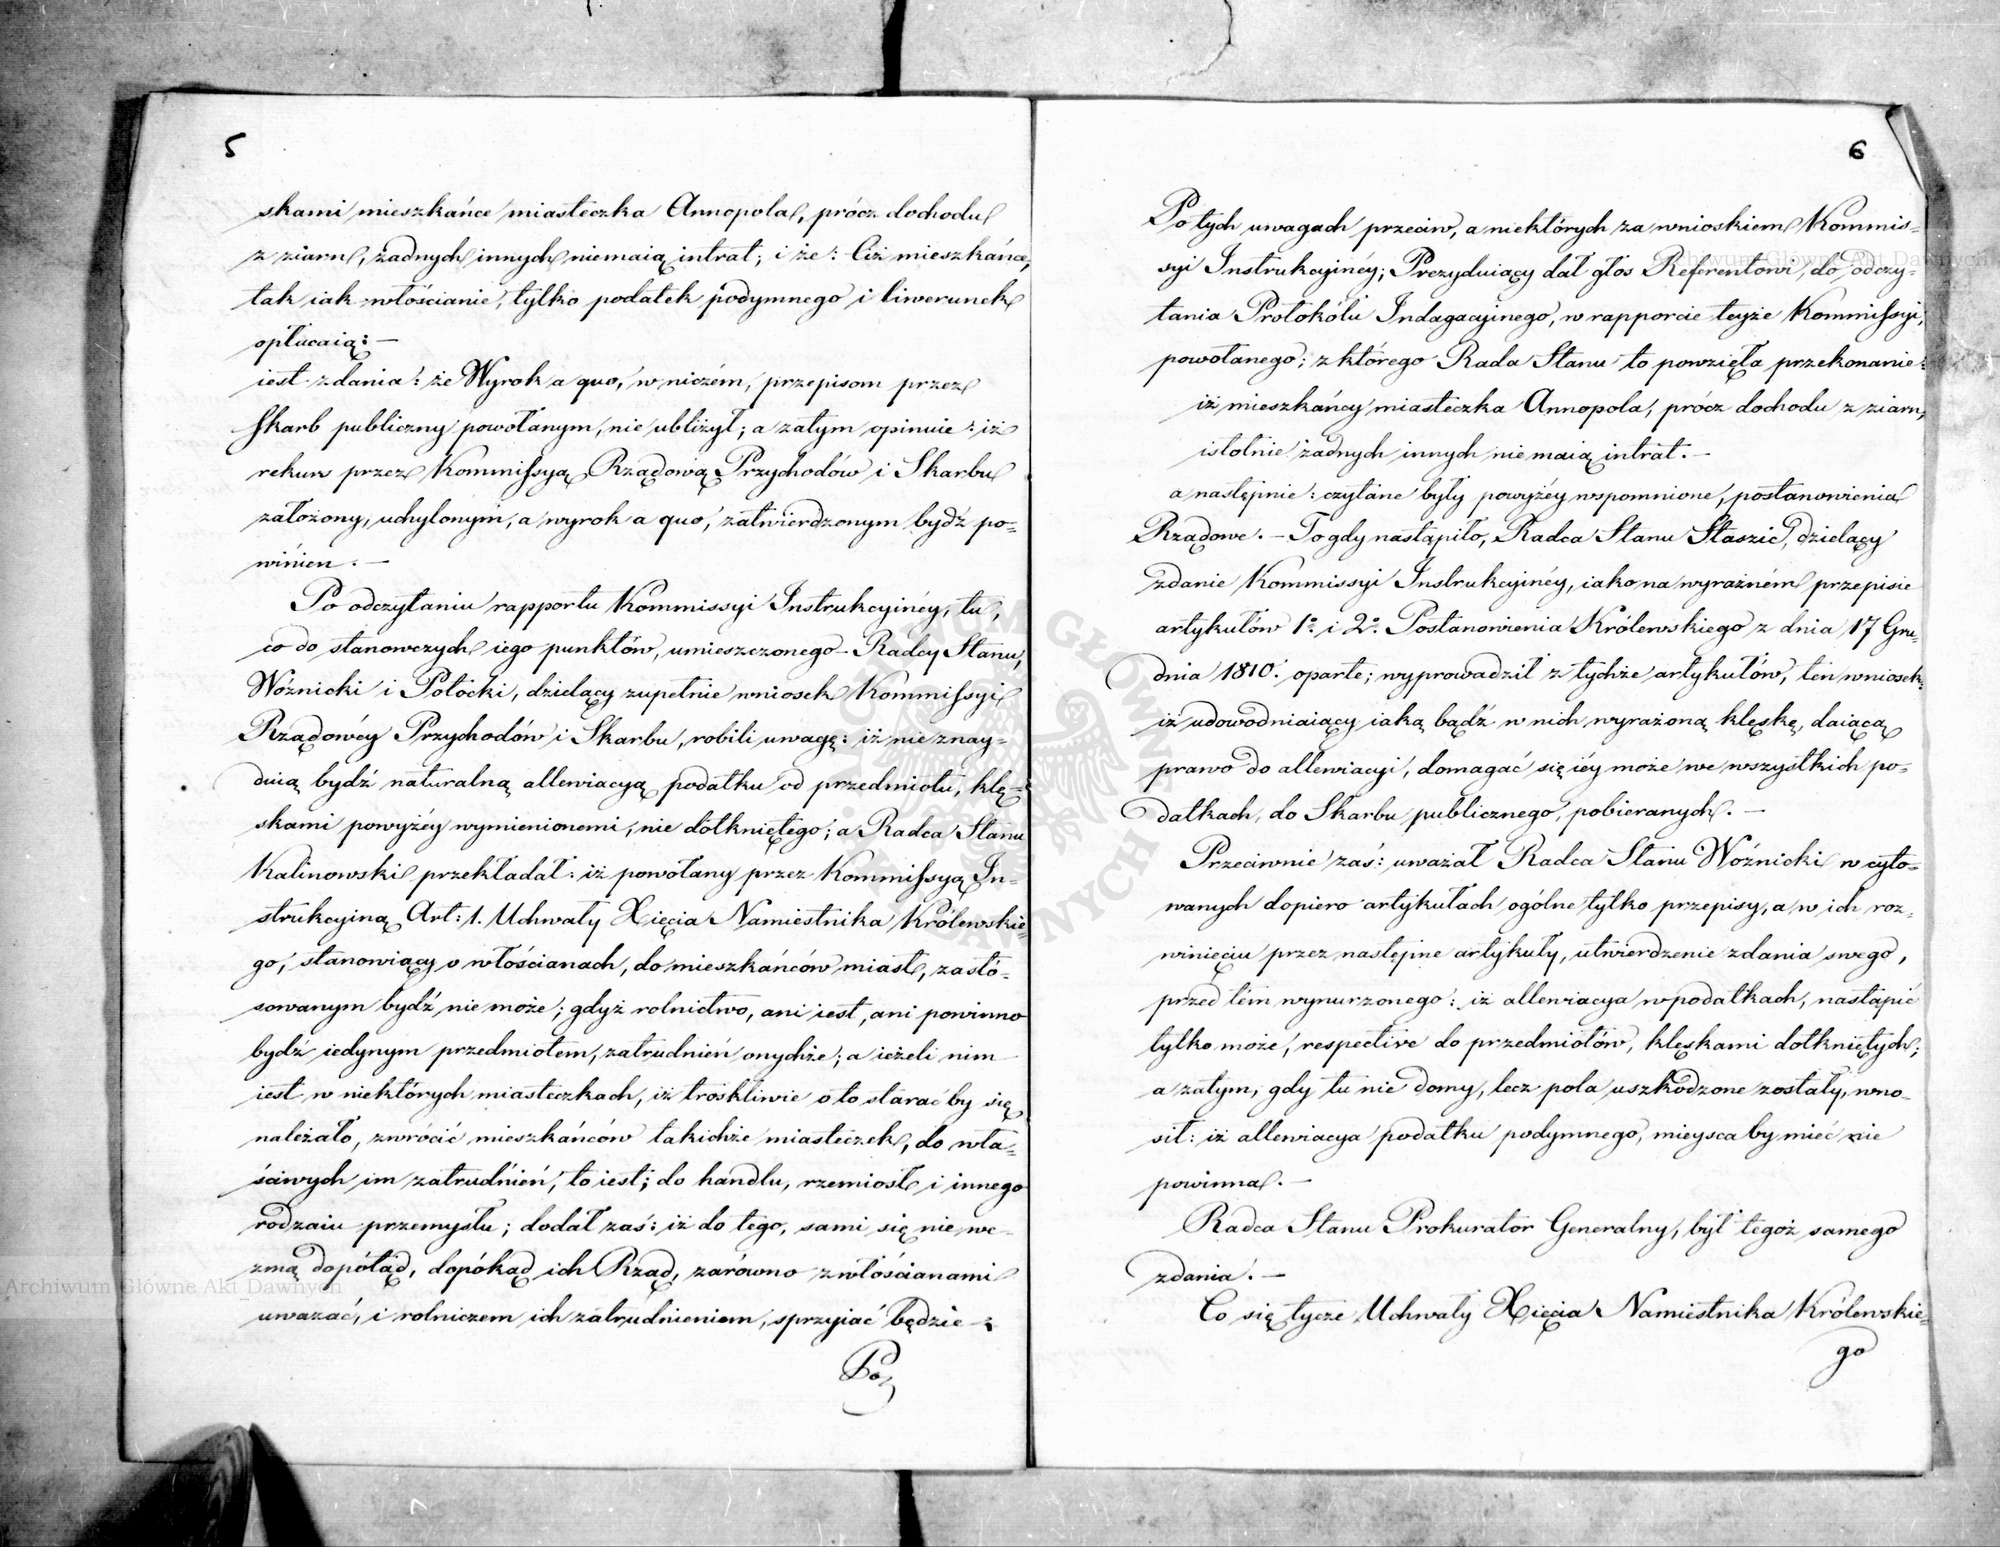 5
skami mieszkańce miasteczka Annopola, prócz dochodu
z ziarn, żadnych innych niemaią intrat; i że: Ciż mieszkańce,
tak iak włościanie, tylko podatek podymnego i liwerunek
opłacaią: —
iest zdania: że Wyrok a quo, w niczém, przepisom przez
Skarb publiczny powołanym, nie ubliżył; a zatym opinuie: iż
rekurs przez Kommissyą Rządową Przychodów i Skarbu
założony, uchylonym, a wyrok a quo, zatwierdzonym bydź po=
winien. —
Po odczytaniu rapportu Kommissyi Instrukcyinéy, tu,
co do stanowczych iego punktów, umieszczonego – Radcy Stanu,
Woźnicki i Potocki, dzieląćy zupełnie wniosek Kommissyi
Rządowéy Przychodów i Skarbu, robili uwagę: iż nie znay=
duią bydź naturalną allewiacyą podatku od przedmiotu, klę=
skami powyżéy wymienionemi, nie dotkniętego; a Radca Stanu
Kalinowski przekładał: iż powołany przez Kommissyą In=
strukcyiną Art: 1. Uchwały Xięcia Namiestnika Królewskie=
go, stanowiący o włościanach, do mieszkańców miast, zasto=
sowanym bydź nie może; gdyż rolnictwo, ani iest, ani powinno
bydź iedynym przedmiotem, zatrudnień onychże; a ieżeli nim
iest w niektórych miasteczkach, iż troskliwie o to starać by się
należało, zwrócić mieszkańców takichże miasteczek, do wła=
ściwych im zatrudnień, to iest; do handlu, rzemiosł i innego
rodzaiu przemysłu; dodał zaś: iż do tego, sami się nie we=
zmą dopótąd, dopókąd ich Rząd, zarówno z włościanami
uważać, i rolniczem ich zatrudnieniem, sprzyiać będzie –:
Po
6
Po tych uwagach przeciw, a niektórych za wnioskiem Kommis=
syi Instrukcyinéy; Prezyduiący dał głos Referentowi, do odczy=
tania Protokółu Indagacyinego, w rapporcie teyże Kommissyi,
powołanego; z którego Rada Stanu to powzięła przekonanie:
iż mieszkańcy miasteczka Annopola, prócz dochodu z ziarn,
istotnie żadnych innych nie maią intrat. —
a następnie: czytane były powyżéy wspomnione, postanowienia
Rządowe. — To gdy nastąpiło, Radca Stanu Staszic, dzieląćy
zdanie Kommissyi Instrukcyinéy, iako na wyraźném przepisie
artykułów 1º i 2º Postanowienia Królewskiego z dnia 17 Gru=
dnia 1810. oparte; wyprowadził z tychże artykułów, ten wniosek:
iż udowodniaiący iaką bądź w nich wyrażoną klęskę, daiącą
prawo do allewiacyi, domagać się iéy może we wszystkich po=
datkach, do Skarbu publicznego, pobieranych. —
Przeciwnie zaś: uważał Radca Stanu Woźnicki w cyto=
wanych dopiero artykułach ogólne tylko przepisy, a w ich roz=
winięciu przez następne artykuły, utwierdzenie zdania swego,
przed tém wynurzonego: iż allewiacya w podatkach, nastąpić
tylko może, respective do przedmiotów, klęskami dotkniętych;
a zatym, gdy tu nie domy, lecz pola uszkodzone zostały, wno=
sił: iż allewiacya podatku podymnego, mieysca by mieć nie
powinna. —
Radca Stanu Prokurator Generalny, był tegoż samego
zdania. —
Co się tycze Uchwały Xięcia Namiestnika Królewskie=
go
Archiwum Główne Akt Dawnych
Archiwum Główne Akt Dawnych